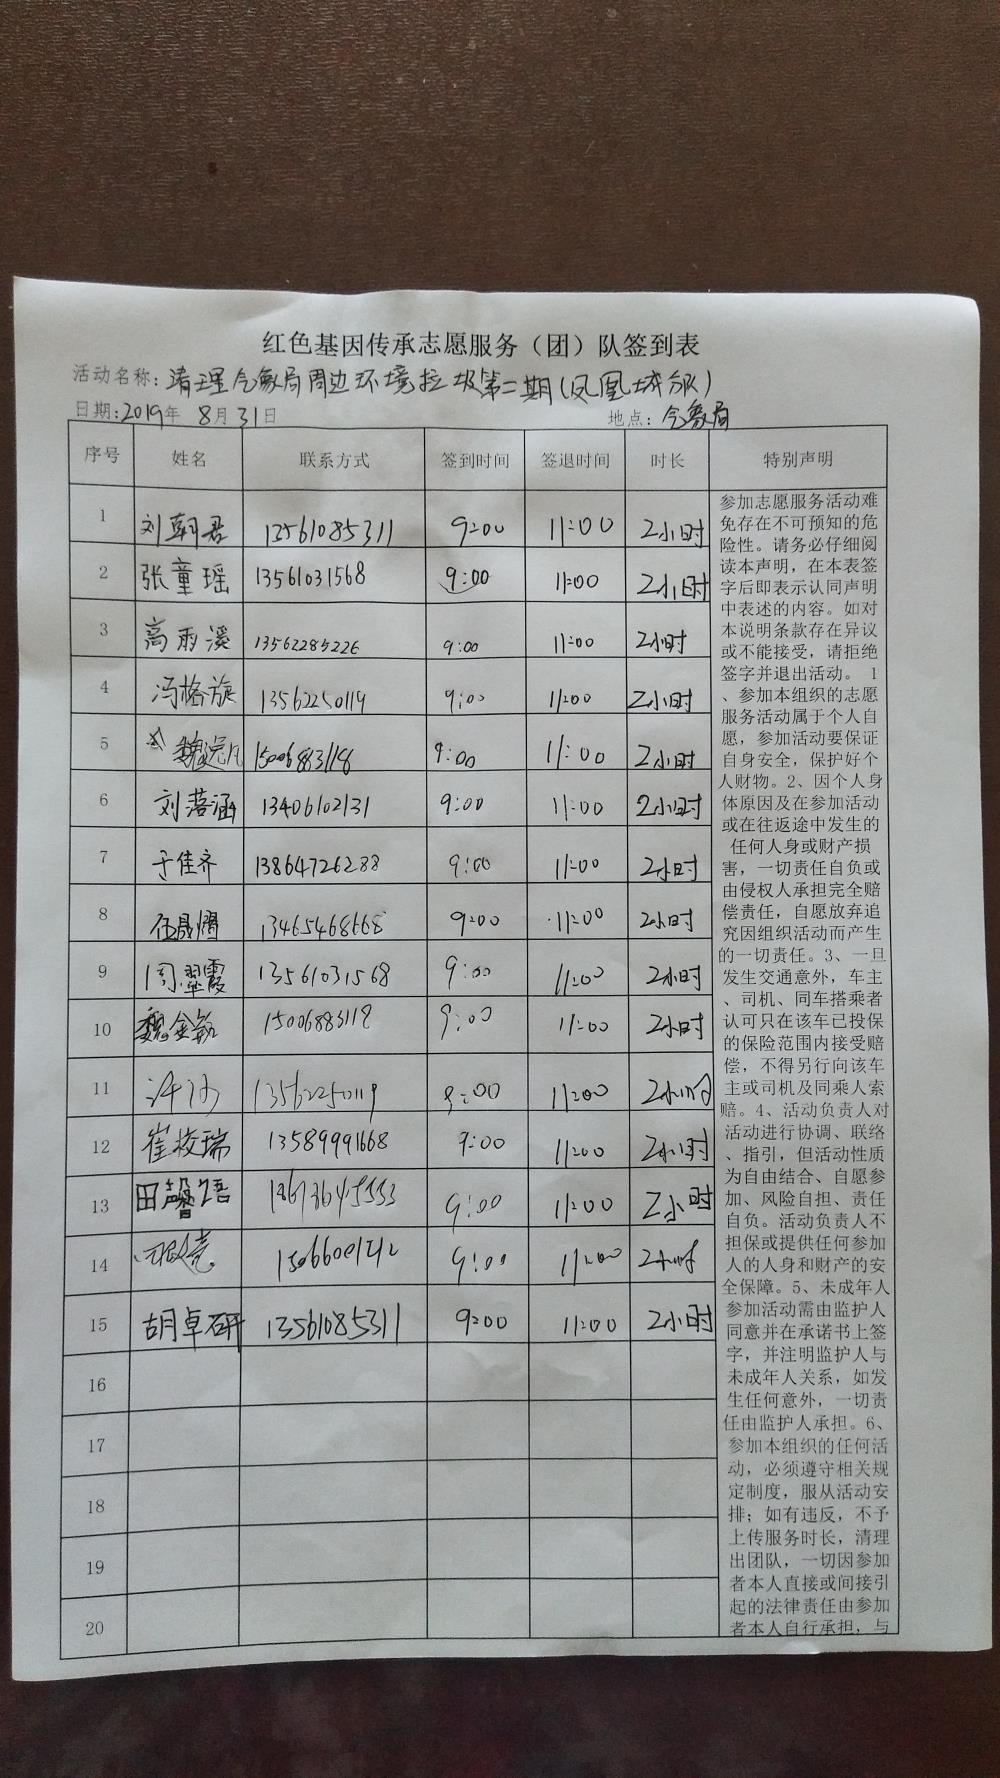 红色基因传承志愿服务（团）队签到表
活动名称：清理气象局周边环境垃圾第二期（凤凰城分队）
日期：2019年 8月31日 地点：气象局
序号 姓名 联系方式 签到时间 签退时间 时长 特别声明
1 刘朝君 13561085311 9:00 11:00 2小时
2 张童瑶 13561031568 9:00 11:00 2小时
3 高雨溪 13562285226 9:00 11:00 2小时
4 冯格旋 13562250119 9:00 11:00 2小时
5 魏远凡 15006883118 9:00 11:00 2小时
6 刘落涵 13406102131 9:00 11:00 2小时
7 于佳齐 13864726288 9:00 11:00 2小时
8 伍晟熠 13465468668 9:00 11:00 2小时
9 周翠霞 13561031568 9:00 11:00 2小时
10 魏金敏 15006883118 9:00 11:00 2小时
11 13562250119 9:00 11:00 2小时
12 崔梭瑞 13589991668 9:00 11:00 2小时
13 田馨语 9:00 11:00 2小时
14 9:00 11:00 2小时
15 胡卓研 13561085311 9:00 11:00 2小时
16
17
18
19
20
参加志愿服务活动难
免存在不可预知的危
险性。请务必仔细阅
读本声明，在本表签
字后即表示认同声明
中表述的内容。如对
本说明条款存在异议
或不能接受，请拒绝
签字并退出活动。 1
、参加本组织的志愿
服务活动属于个人自
愿，参加活动要保证
自身安全，保护好个
人财物。2、因个人身
体原因及在参加活动
或在往返途中发生的
任何人身或财产损
害，一切责任自负或
由侵权人承担完全赔
偿责任，自愿放弃追
究因组织活动而产生
的一切责任。3、一旦
发生交通意外，车主
、司机、同车搭乘者
认可只在该车已投保
的保险范围内接受赔
偿，不得另行向该车
主或司机及同乘人索
赔。4、活动负责人对
活动进行协调、联络
、指引，但活动性质
为自由结合、自愿参
加、风险自担、责任
自负。活动负责人不
担保或提供任何参加
人的人身和财产的安
全保障。5、未成年人
参加活动需由监护人
同意并在承诺书上签
字，并注明监护人与
未成年人关系，如发
生任何意外，一切责
任由监护人承担。6、
参加本组织的任何活
动，必须遵守相关规
定制度，服从活动安
排；如有违反，不予
上传服务时长，清理
出团队，一切因参加
者本人直接或间接引
起的法律责任由参加
者本人自行承担，与